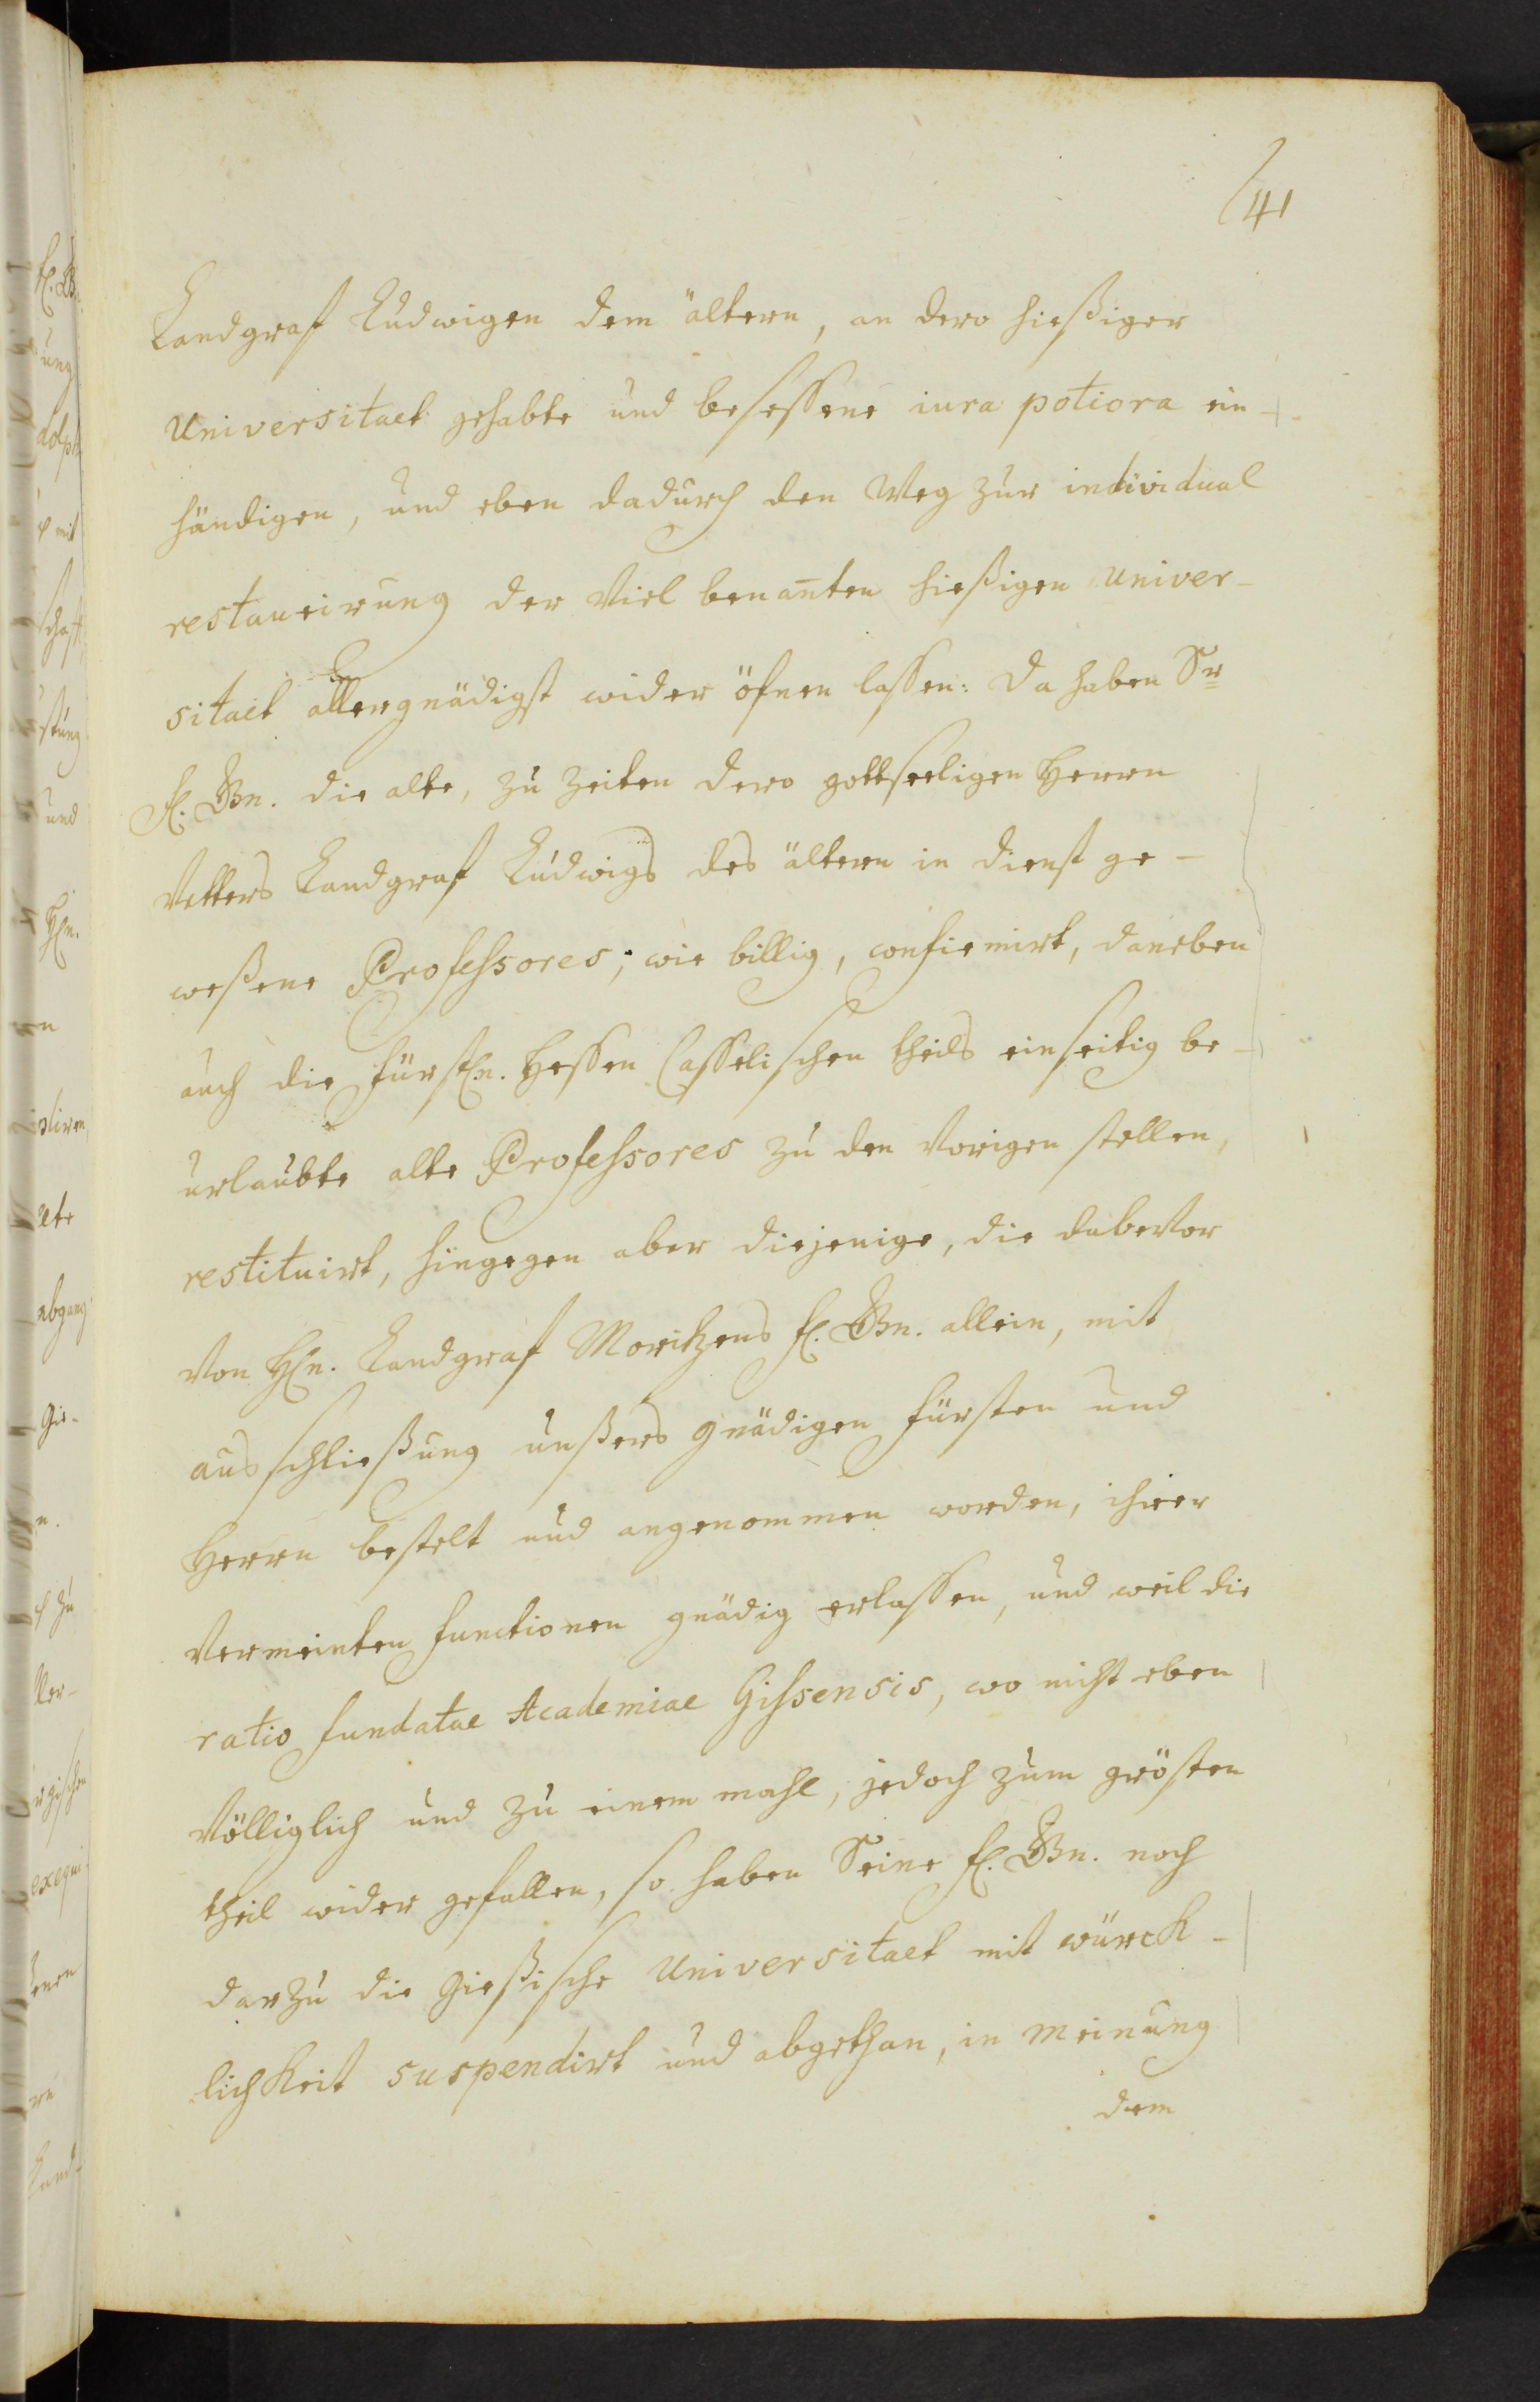 41
Landgraf Ludwigen dem ältern, an dero hießiger
Universitaet gehabte und besessene iura potiora ein-
händigen, und eben dadurch den Weg zur individual
restaurirung der Viel benan̄ten hießigen Univer-
sitaet allergnädigst wider öfnen lassen: Da haben Sr
f. Gn. die alte, zu Zeiten dero gottseeligen Herrn
Vetters Landgraf Ludwigs des ältern in Dienst ge-
weßene Professores, wie billig, confirmirt, daneben
auch die fürstln. Hessen Casselischen theils einseitig be-
urlaubte alte Professores zu den Vorigen stellen,
restituirt, hingegen aber diejenige, die dabevor
Von Hln. Landgraf Moritzens f. Gn. allein, mit
ausschließung unßers gnädigen fürsten und
Herrn bestelt und angenommen worden, ihrer
Vermeinten functionen gnädig erlassen, und weil die
ratio fundatae Academiae Gissensis, wo nicht eben
Völliglich und zu einem mahl, jedoch zum grösten
theil wider gefallen, so haben Seine f. Gn. noch
darzu die Gießische Universitaet mit würck-
lichkeit suspendirt und abgethan, in meinung
dem